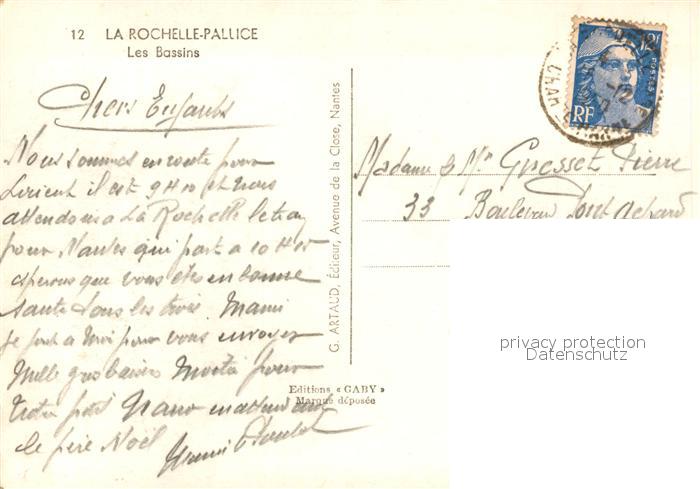 12 LA ROCHELLE-PALLICE
Les Bassins
Chers Enfants
Nous sommes en route pour
Lorient il est 9H10 et nous
attendons a La Rochelle le train
pour Nantes qui part a 10H15
esperons que vous êtes en bonne
sante tous les trois. Mami
se joint a Moi pour vous envoyer
Mille gros baisers
pour
Votre petit en attendant
le père Noël
G. ARTAUD, Éditeur, Avenue de la Close, Nantes
Editions « GABY »
Marque déposée
12F
POSTES
RF
Madame & Mr Gresset Pierre
33 Boulevard Pont Achard
privacy protection
Datenschutz